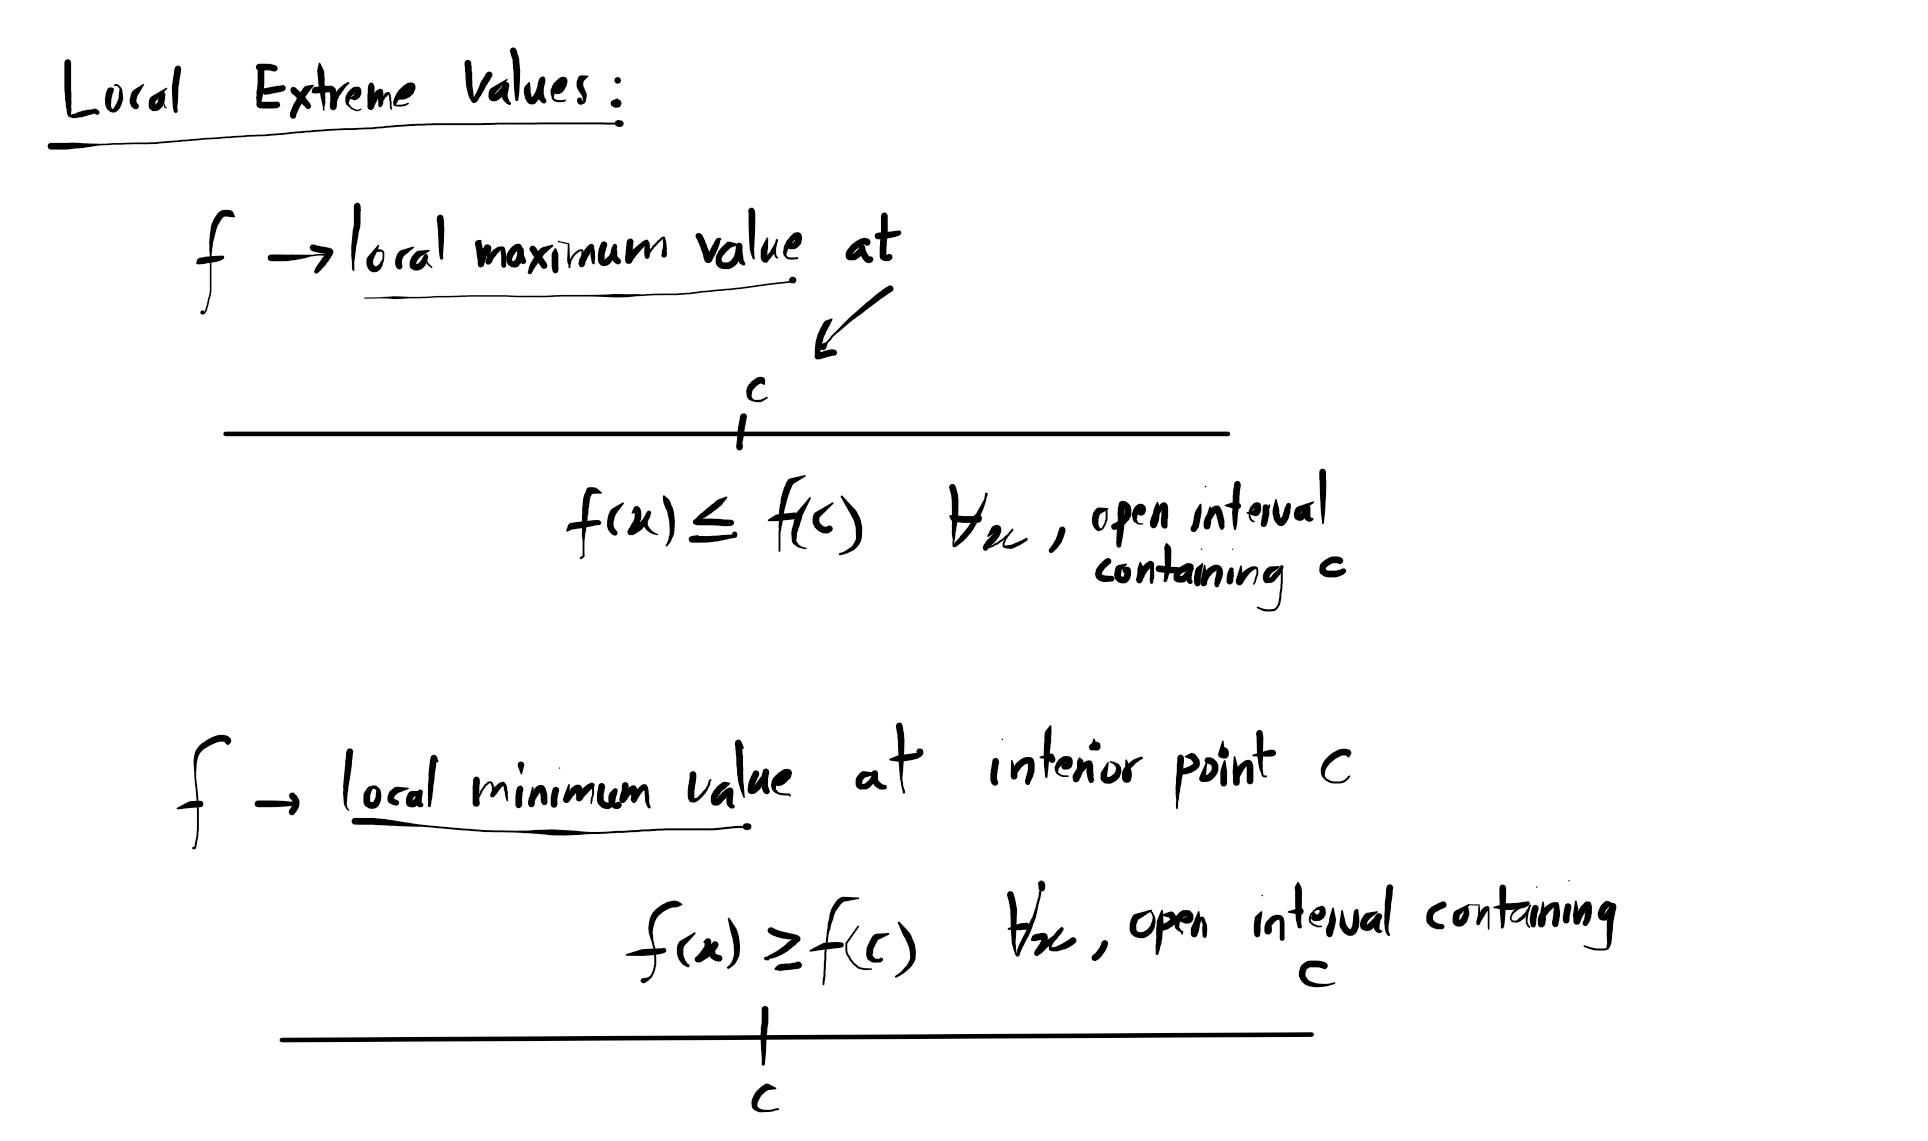 Local Extreme Values:
f → local maximum value at
c
f(x) ≤ f(c) ∀x, open interval
containing c
f → local minimum value at interior point c
f(x) ≥ f(c) ∀x, open interval containing
c
c